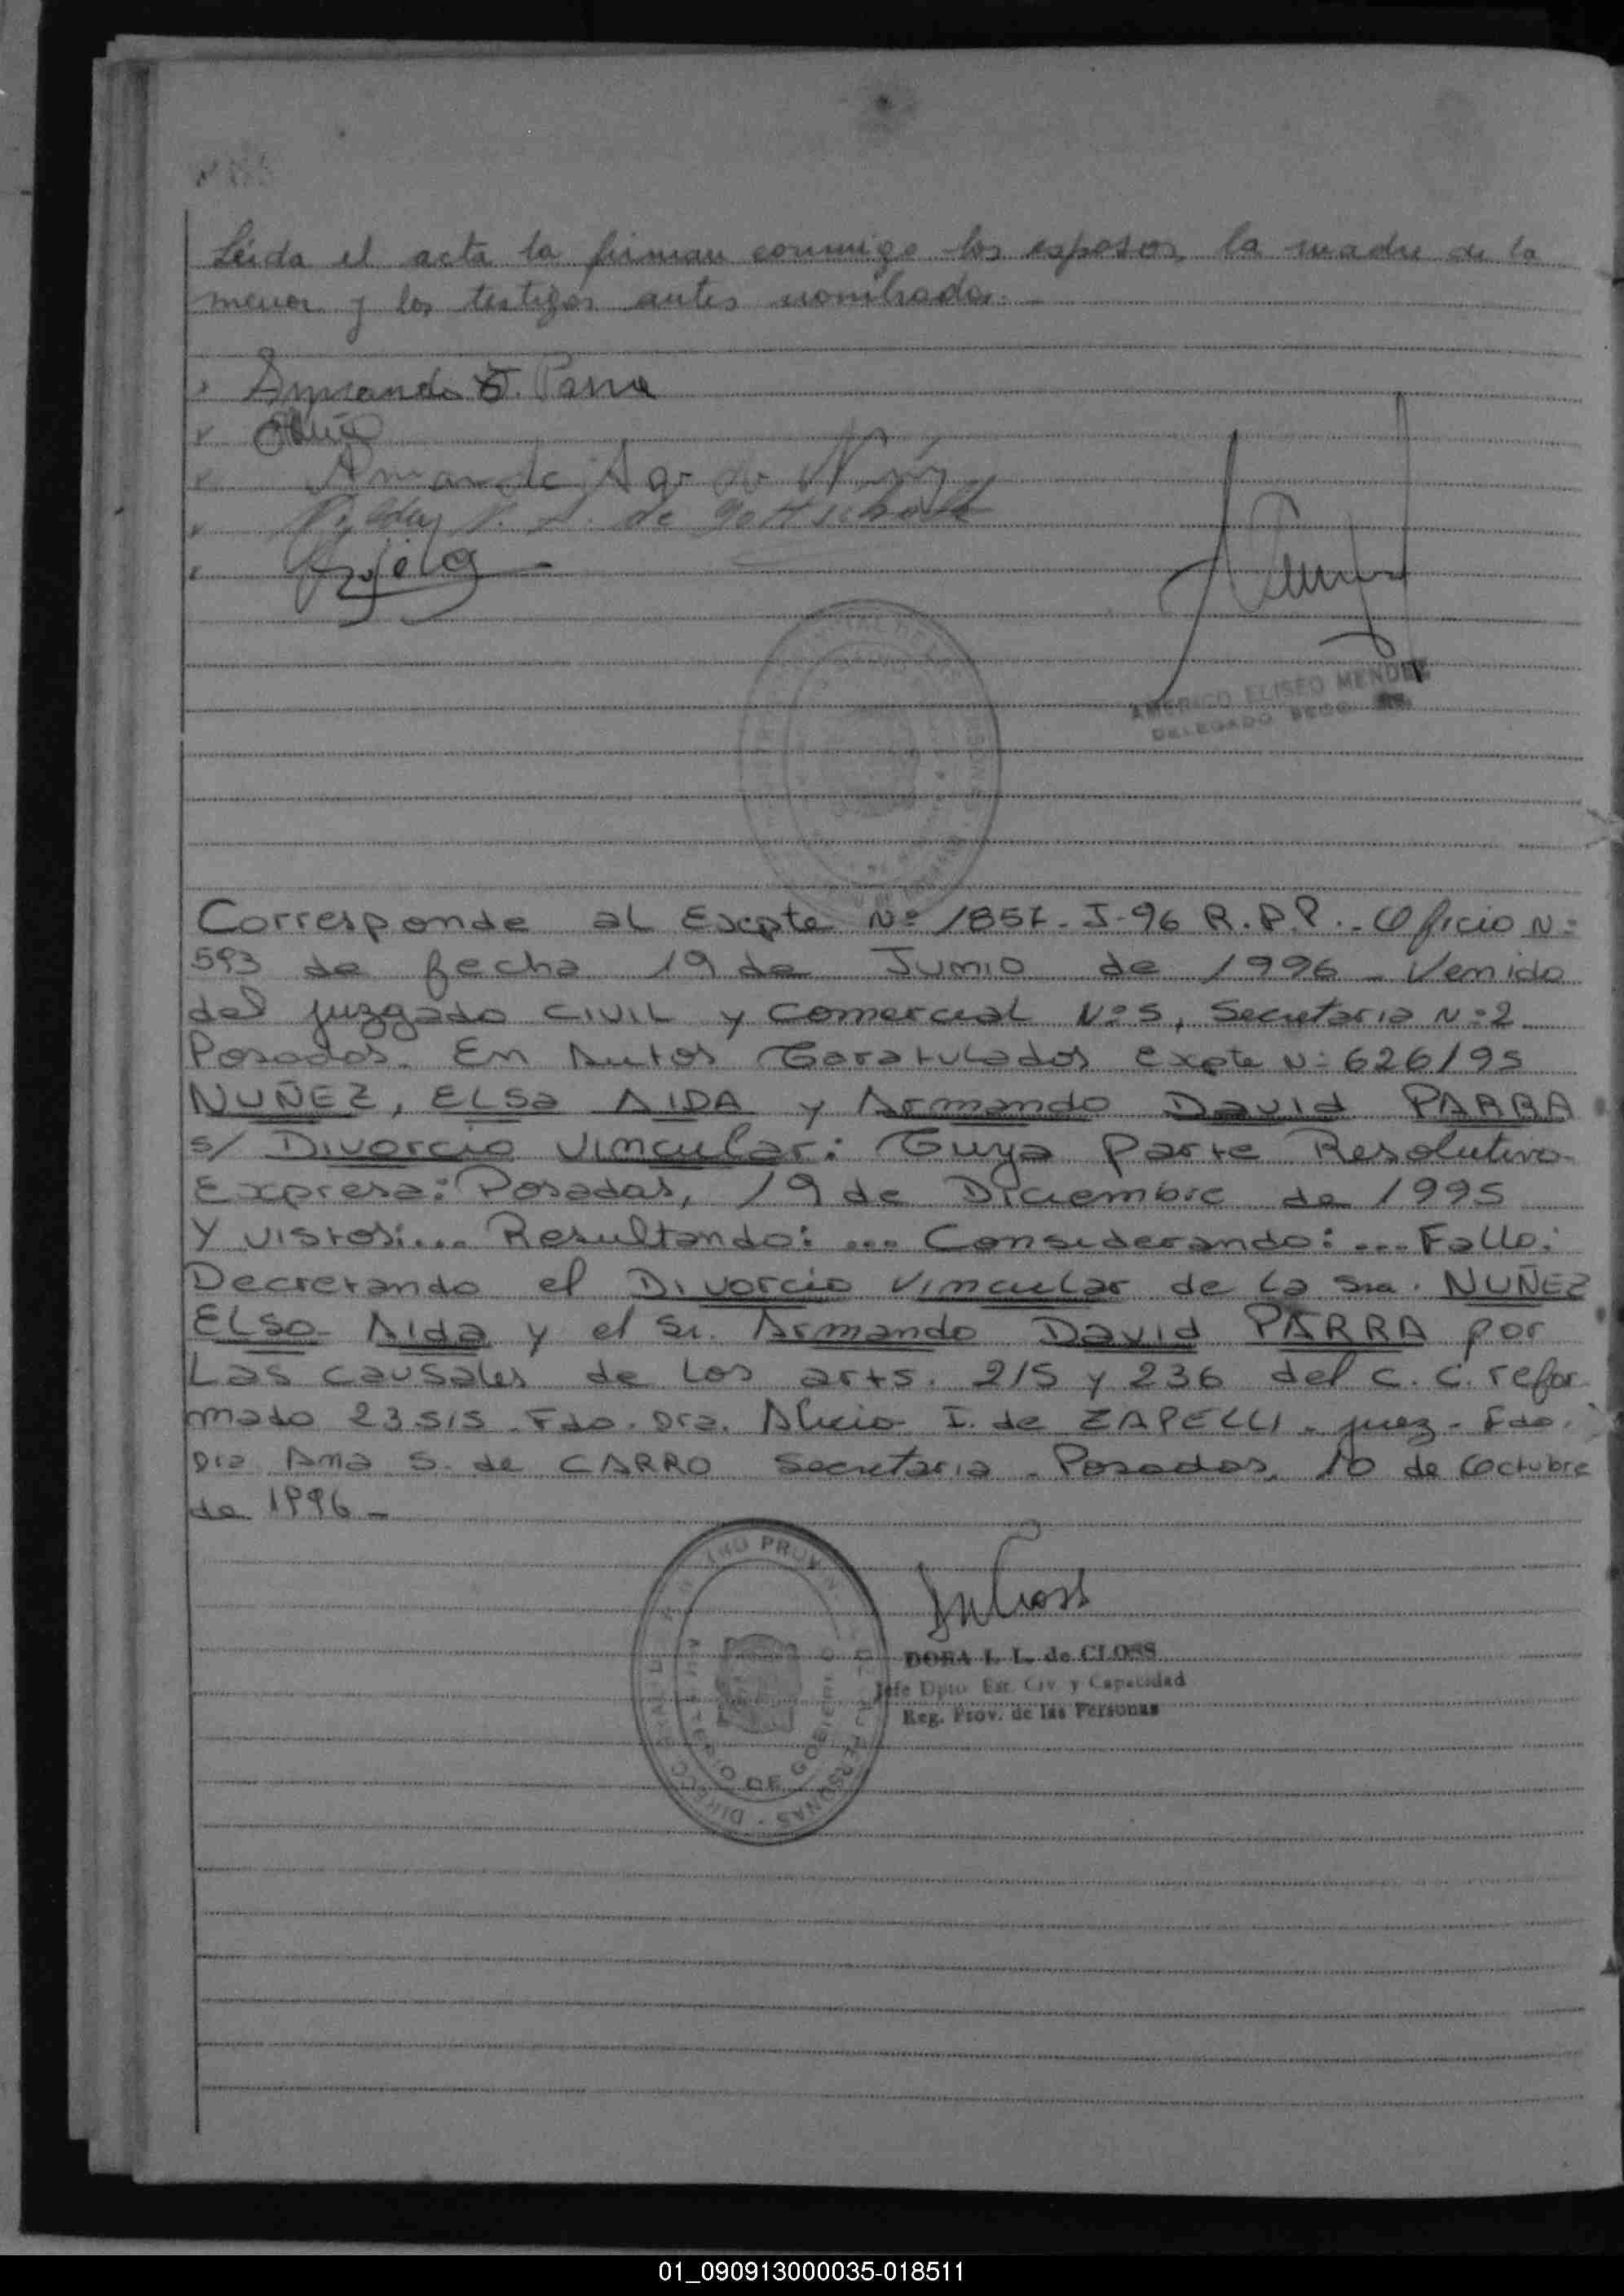 Leída el acta la firman conmigo los esposos, la madre de la
menor y los testigos antes nombrados.-
Armando D. Parra
de Gottschalk
AMERICO ELISEO MENDEZ
DELEGADO
Corresponde al Expte Nº 1857-J-96 R.P.P.- Oficio Nº
593 de fecha 19 de Junio de 1996 - Venido
del Juzgado CIVIL y Comercial Nº 5, Secretaria Nº 2
Posadas. En Autos Caratulados Expte Nº 626/95
NUÑEZ, ELSa AIDA y Armando David PARRA
s/ Divorcio Vincular: Cuya parte Resolutiva
Expresa: Posadas, 19 de Diciembre de 1995
Y vistos:... Resultando: ... Considerando: ... Fallo:
Decretando el Divorcio Vincular de la Sra. NUÑEZ
ELSa Aida y el Sr. Armando David PARRA por
Las causales de los arts. 215 y 236 del C. C. refor
mado 23515. Fdo. Dra. Alicia I. de ZAPELLI - Juez - Fdo.
Dra Ana S. de CARRO Secretaria - Posadas, 10 de Octubre
de 1996 -
DORA I. L. de CLOSS
Jefe Dpto. Est. Civ. y Capacidad
Reg. Prov. de las Personas
01_090913000035-018511